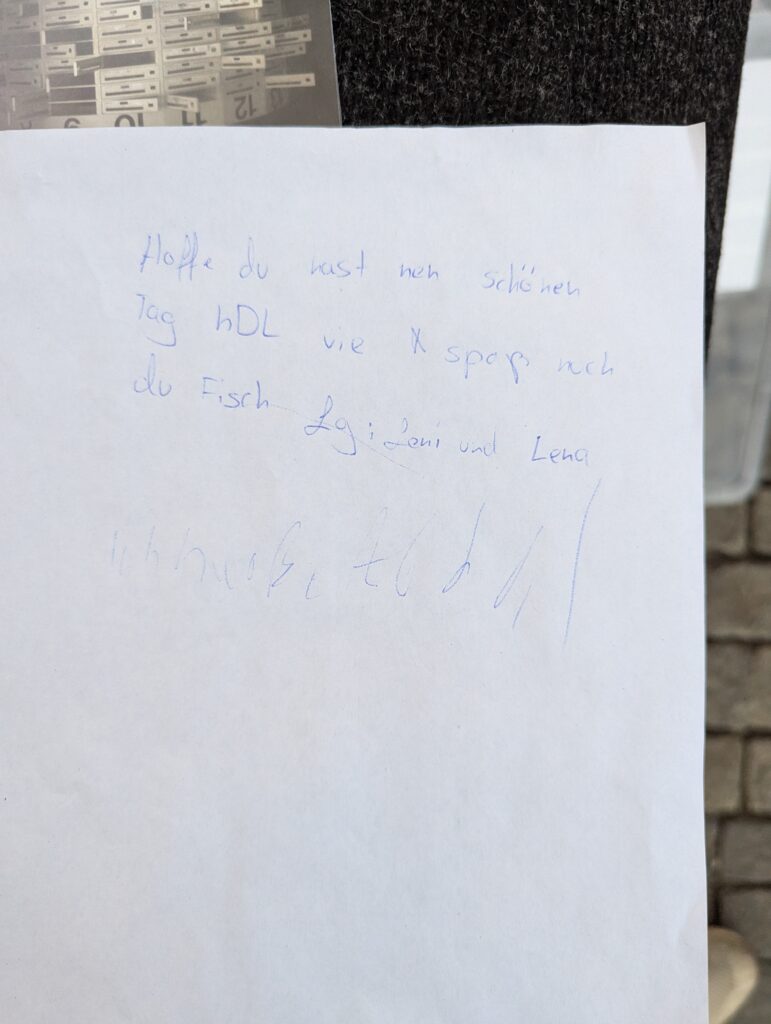 10 11 12
Hoffe du hast nen schönen
Tag hDL vie X spaß noch
du Fisch Lg: Leni und Lena